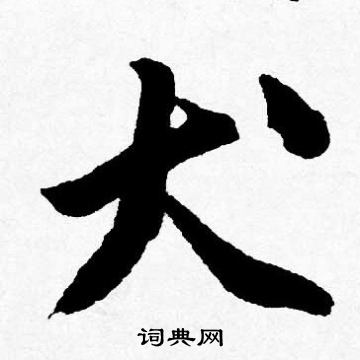 犬
词典网